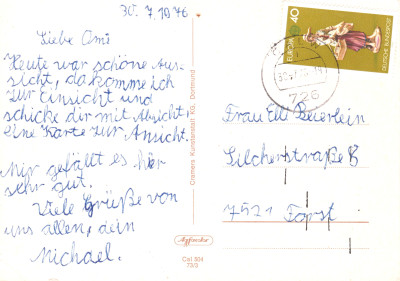 30. 7. 1976
Liebe Omi
Heute war schöne Aus-
sicht, da komme ich
zur Einsicht und
schicke dir mit Absicht,
eine Karte zur Ansicht.
Mir gefällt es hier
sehr gut.
Viele Grüße von
uns allen, dein
Michael.
Cramers Kunstanstalt KG, Dortmund
Agfacolor
Cel 924
73/3
EUROPA
40
DEUTSCHE BUNDESPOST
726
Frau Elli Beierlein
Silcherstraße 8
7521 Forst